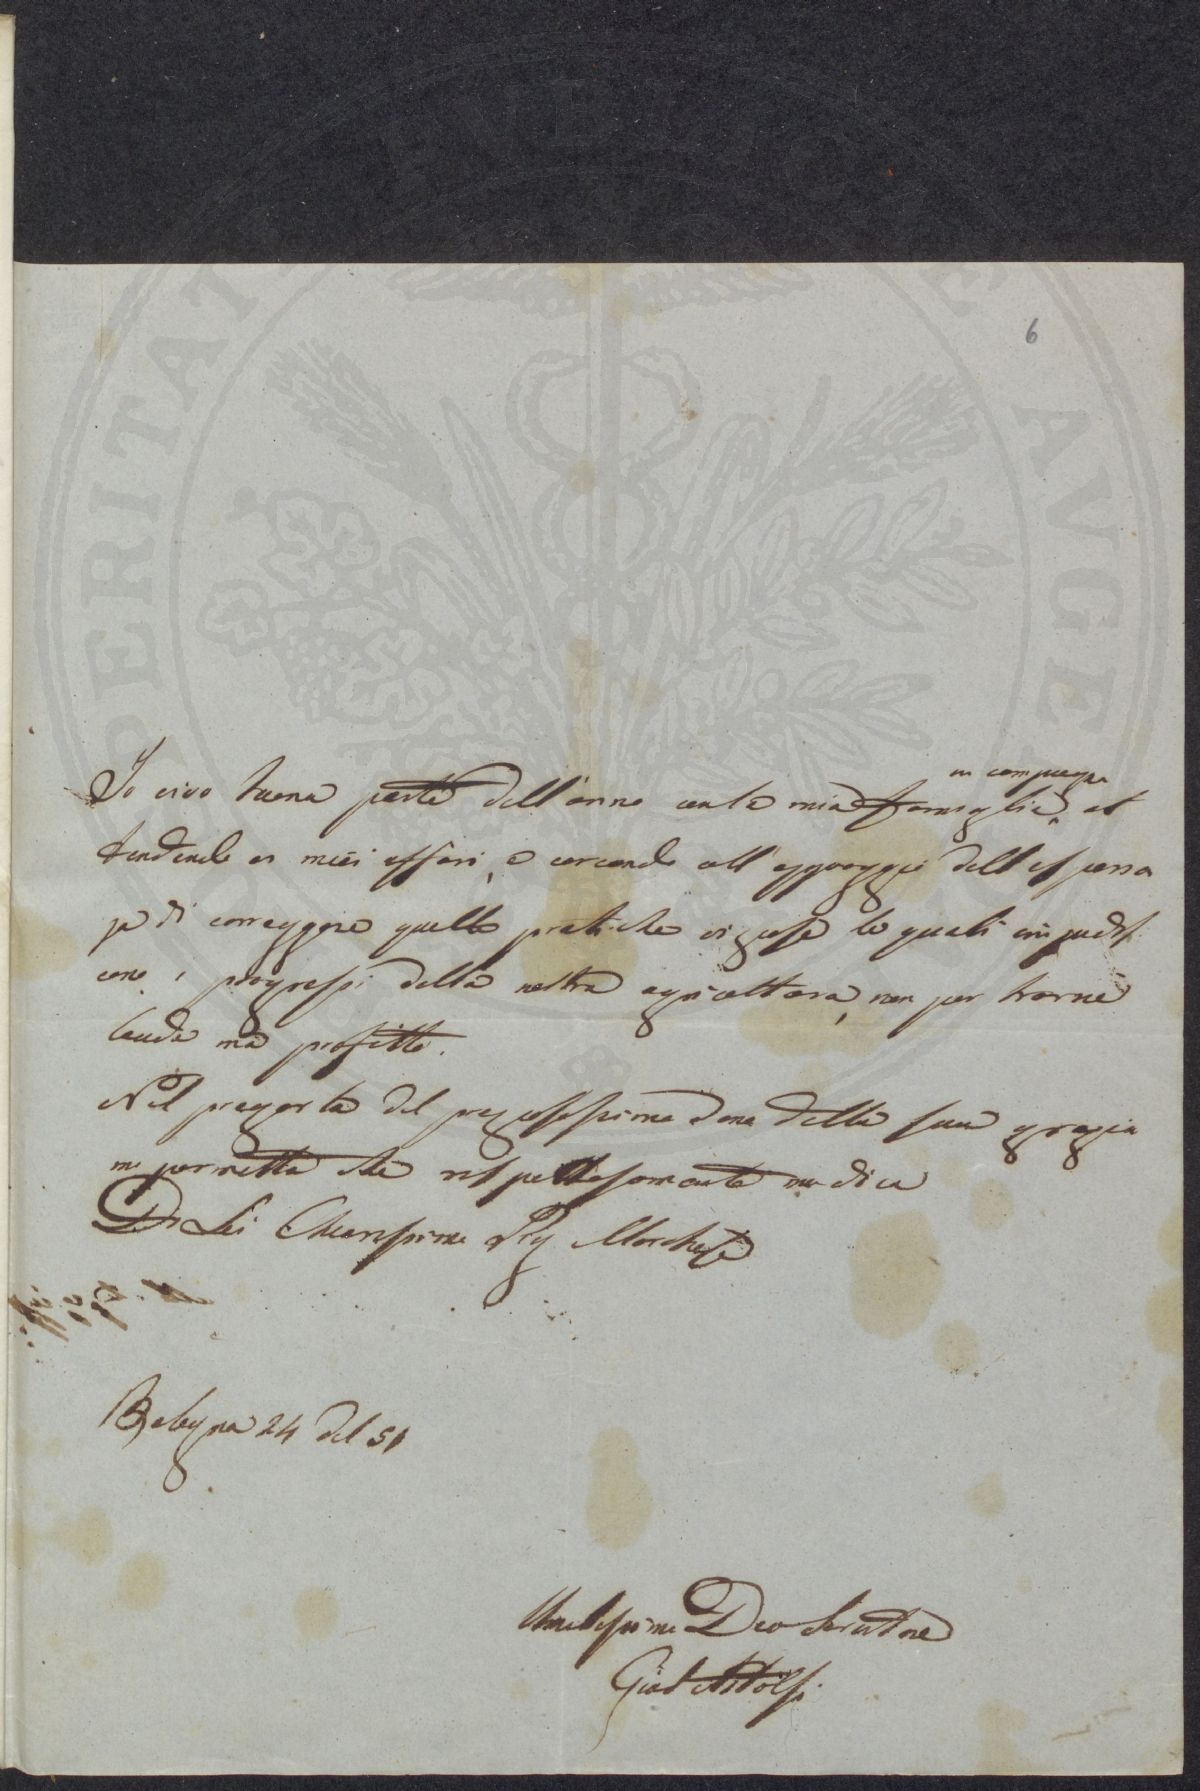 6
in campagna
Io vivo buona parte dell'anno colla mia famiglia at
tendendo ai miei affari, e cercando coll'appoggio dell'esperien
za di correggere quelle pratiche viziose le quali impedis
cono i progressi della nostra agricoltura, non per trarne
laude ma profitto.
Nel pregarla del preziosissimo dono della sua grazia
mi permetta che rispettosamente mi dica
Di Lei Chiarissimo Sig Marchese
Bologna 24 del 51
Umilissimo Dev Servitore
Astolfi